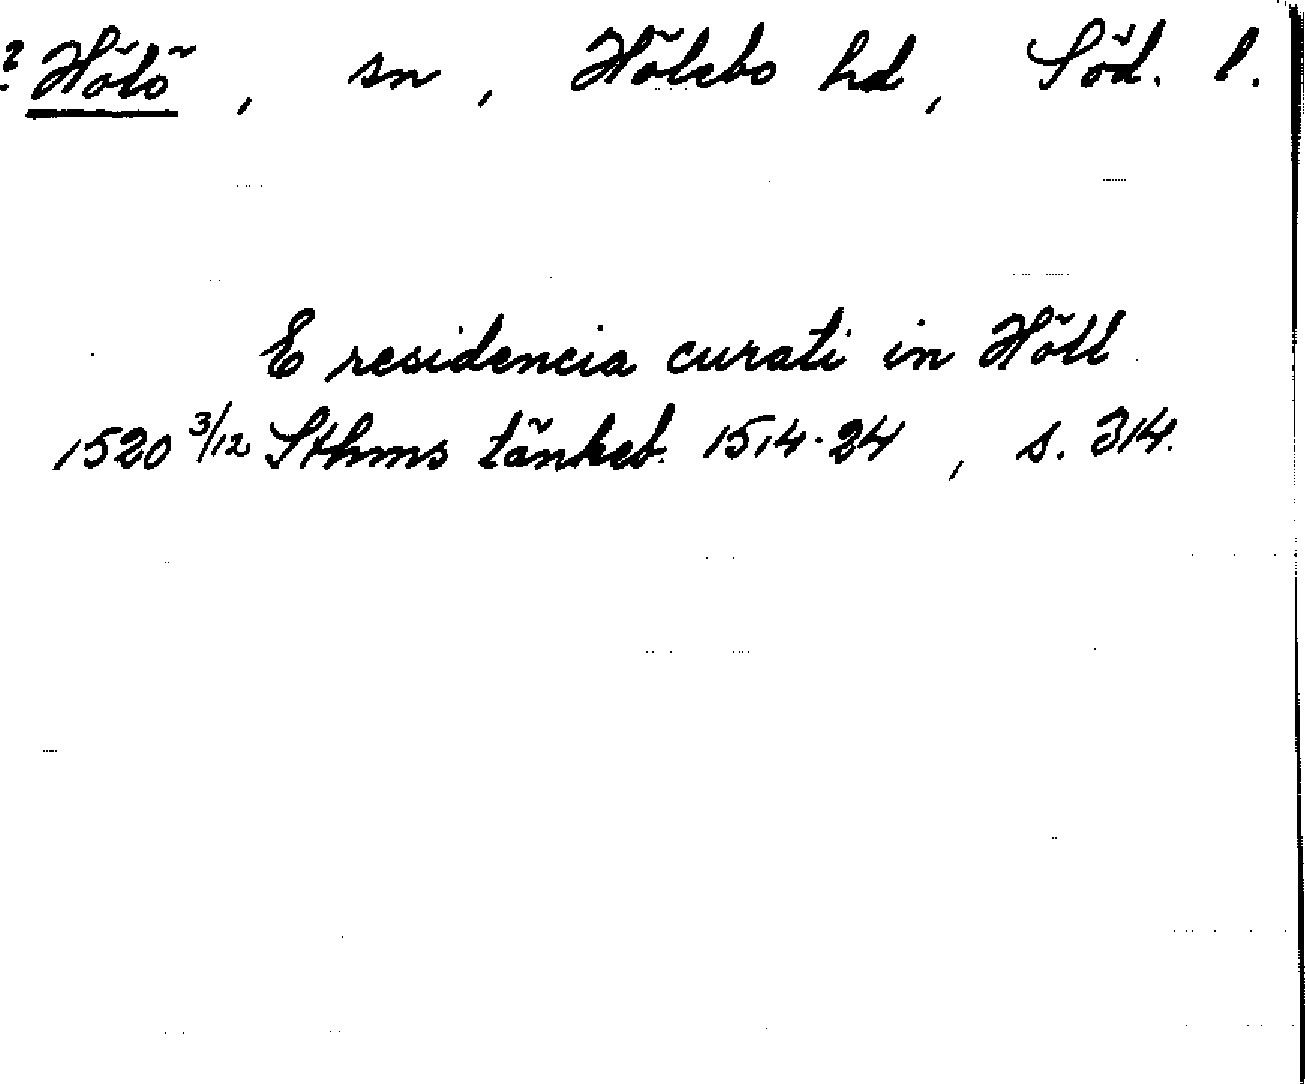 ? Hölö, sn, Hölebo hd, Söd. l.
E residencia curati in Höll
1520 3/12 Sthms tänkeb. 1514-24, s. 314.